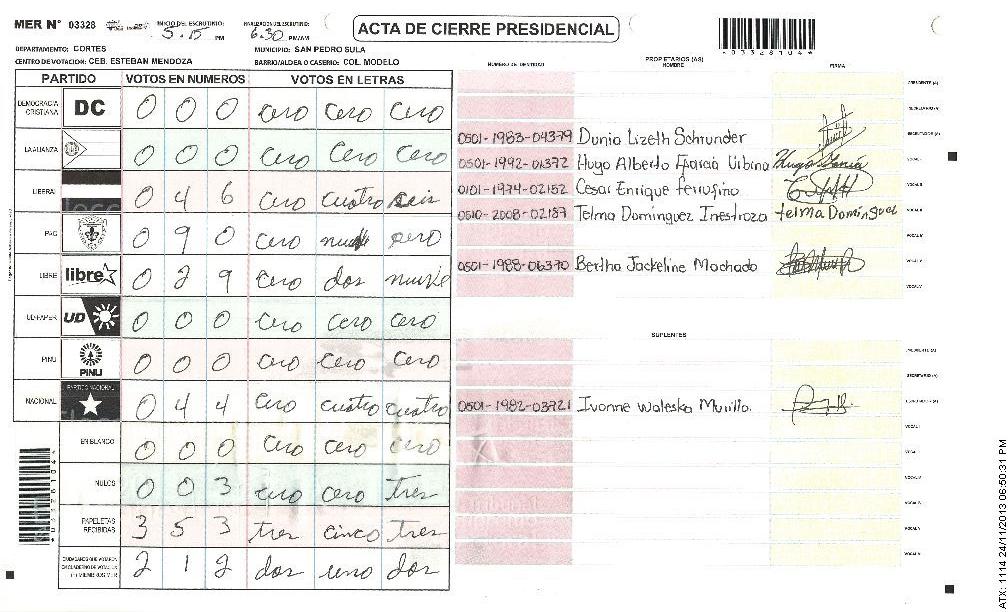 MER N° 03328
INICIO DEL ESCRUTINIO:
5.15 PM
FINALIZACION DEL ESCRUTINIO:
6.30 PM/AM
ACTA DE CIERRE PRESIDENCIAL
*0328104*
DEPARTAMENTO: CORTES
MUNICIPIO: SAN PEDRO SULA
CENTRO DE VOTACION: CEB. ESTEBAN MENDOZA
BARRIO/ALDEA O CASERIO: COL. MODELO
PARTIDO VOTOS EN NUMEROS VOTOS EN LETRAS
DEMOCRACIA CRISTIANA DC 0 0 0 cero cero cero
LA ALIANZA 0 0 0 cero cero cero
LIBERAL 0 4 6 cero cuatro seis
PAC 0 9 0 cero nueve cero
LIBRE libre 0 2 9 cero dos nueve
UD/FAPER UD 0 0 0 cero cero cero
PINU PINU 0 0 0 cero cero cero
NACIONAL PARTIDO NACIONAL 0 4 4 cero cuatro cuatro
EN BLANCO 0 0 0 cero cero cero
NULOS 0 0 3 cero cero tres
PAPELETAS RECIBIDAS 3 5 3 tres cinco tres
CIUDADANOS QUE VOTARON 2 1 2 dos uno dos
NUMERO DE IDENTIDAD
PROPIETARIOS (AS)
NOMBRE
FIRMA
PRESIDENTE (A)
SECRETARIO (A)
0501-1983-04379 Dunia Lizeth Schrunder ESCRUTADOR (A)
0501-1992-01372 Hugo Alberto Garcia Urbina VOCAL I
0101-1974-02152 Cesar Enrique Ferrufino VOCAL II
0510-2008-02187 Telma Dominguez Inestroza telma Dominguez VOCAL III
VOCAL IV
0501-1988-06370 Bertha Jackeline Machado VOCAL V
SUPLENTES
PRESIDENTE (A)
SECRETARIO (A)
0501-1982-03721 Ivonne Waleska Murillo ESCRUTADOR (A)
VOCAL I
VOCAL II
VOCAL III
VOCAL IV
VOCAL V
ATX: 1114 24/11/2013 06:50:31 PM